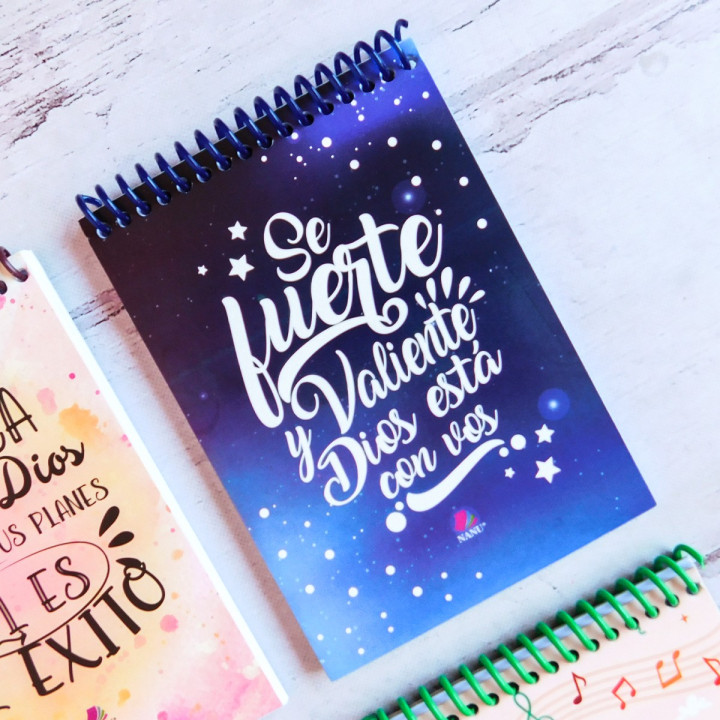 Se
fuerte
y Valiente
Dios está
con vos
NANU
A
Dios
US PLANES
I ES
ÉXITO